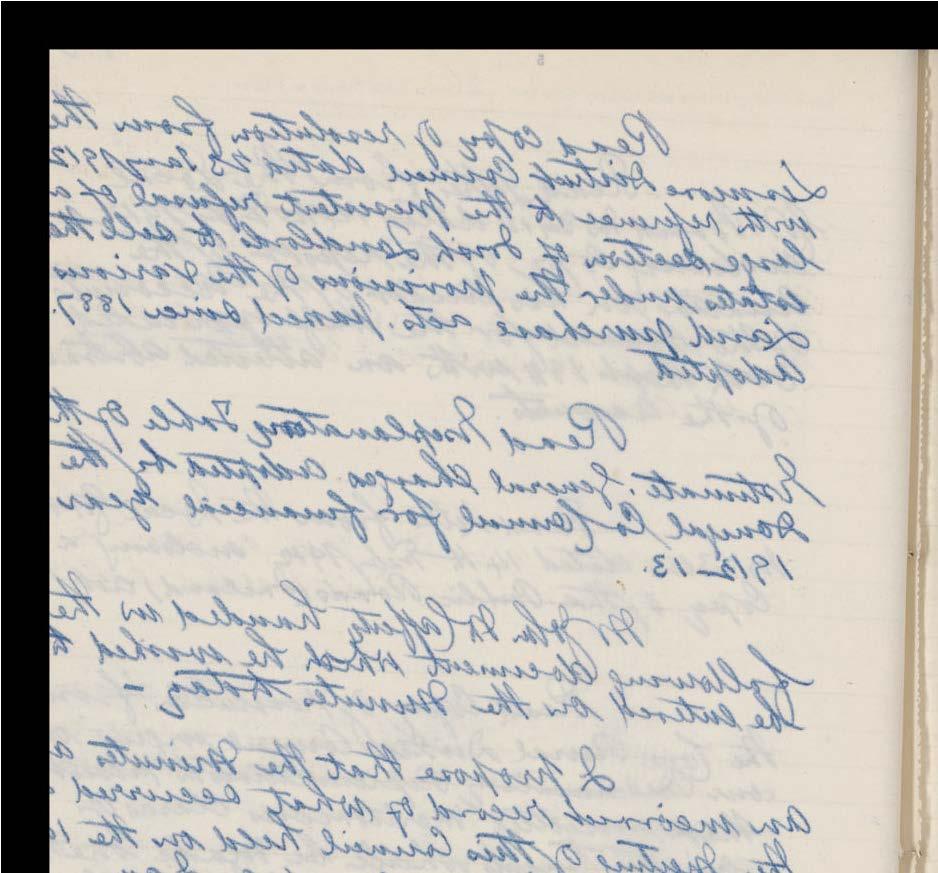 5
Read copy of resolution from the
Lismore District Council dated 25 Jany 1912
with reference to the persistent refusal of a
large section of Irish Landlords to sell the
Estates under the provisions of the various
Land purchase acts passed since 1887.
Adopted
Read Explanatory Table of the
Estimate General Charges adopted by the
Donegal Co Council for financial year
1912-13.
Mr John McCafferty handed in the
following document which he wished to
be entered on the Minutes today -
I propose that the Minutes
an incorrect record of what occurred
the Meeting of this Council held on the